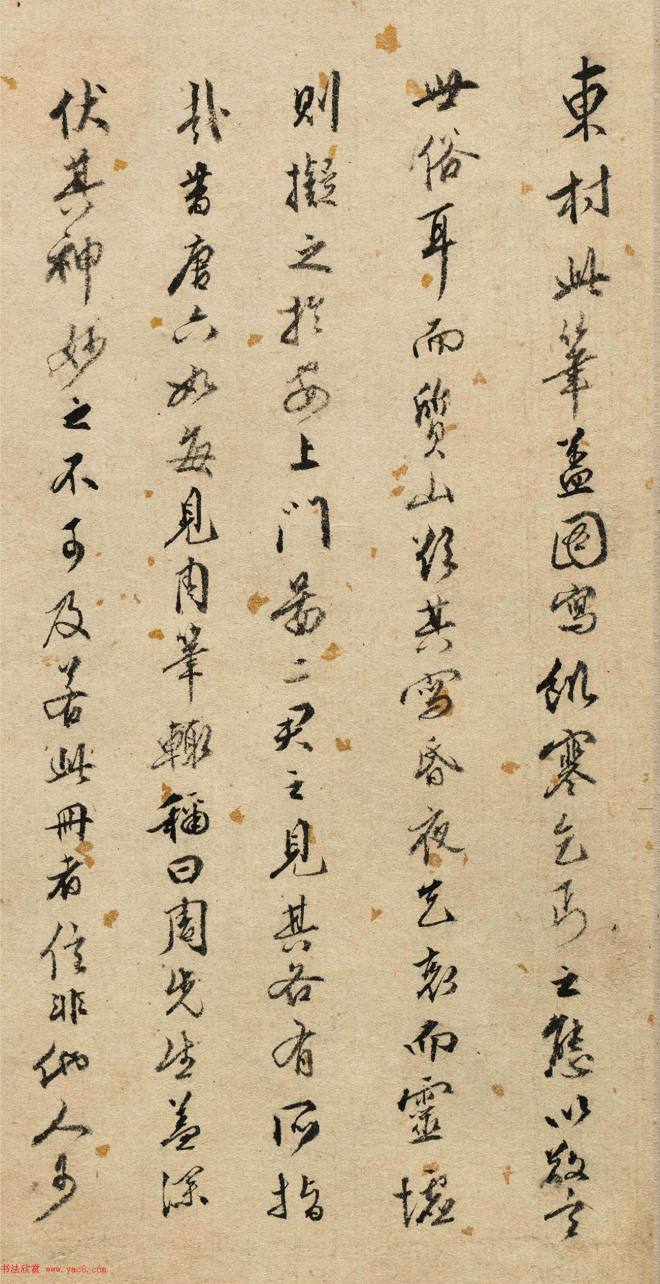 東村此筆蓋圖寫飢寒乞丐之態以警
世俗耳而質山疑其寫昏夜乞哀而靈墟
則擬之於安上門圖二君之見其各有所指
哉昔唐六如每見周筆輒稱曰周先生蓋深
伏其神妙之不可及若此冊者信非他人可
书法欣赏 www.yac8.com